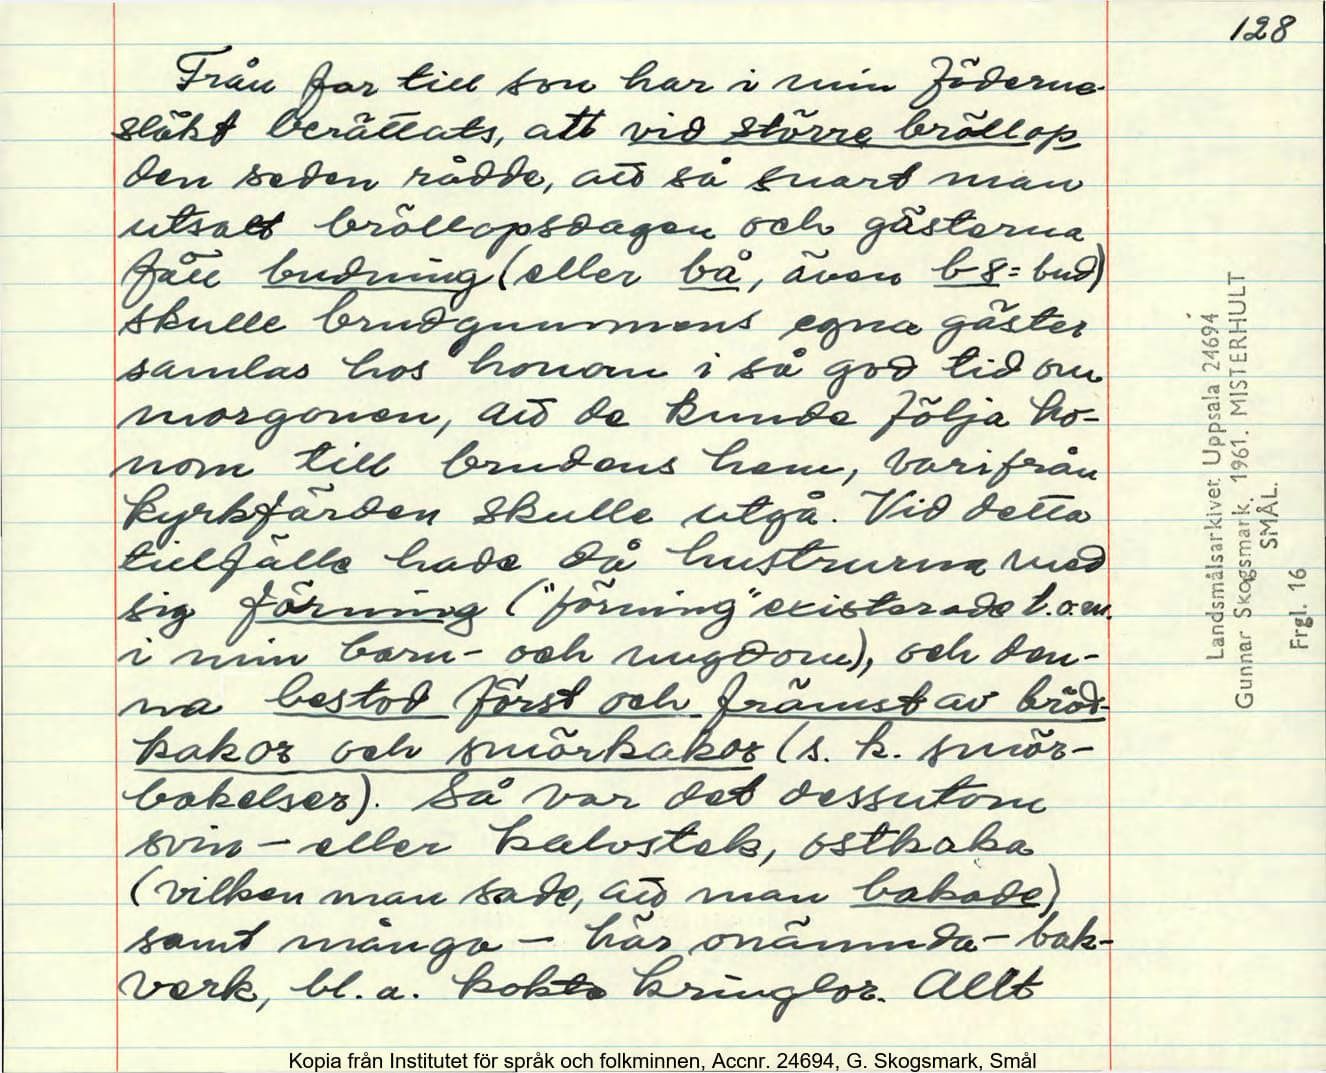 128
Från far till son har i min fäderne-
släkt berättats, att vid större bröllop
den seden rådde, att så snart man
utsatt bröllopsdagen och gästerna
fått budning (eller bå, även b8 = bud)
skulle brudgummens egna gäster
samlas hos honom i så god tid om
morgonen, att de kunde följa ho-
nom till brudens hem, varifrån
kyrkfärden skulle utgå. Vid detta
tillfälle hade då hustrurna med
sig förning ("förning" existerade t.o.m.
i min barn- och ungdom), och den-
na bestod först och främst av bröd-
kakor och smörkakor (s. k. smör-
bakelser). Så var det dessutom
svin- eller kalvstek, ostkaka
(vilken man sade, att man bakade)
samt många - här onämnda - bak-
verk, bl. a. kokta kringlor. Allt
Landsmålsarkivet Uppsala 24694
Gunnar Skogsmark. 1961. MISTERHULT
SMÅL.
Frgl. 16
Kopia från Institutet för språk och folkminnen, Accnr. 24694, G. Skogsmark, Smål